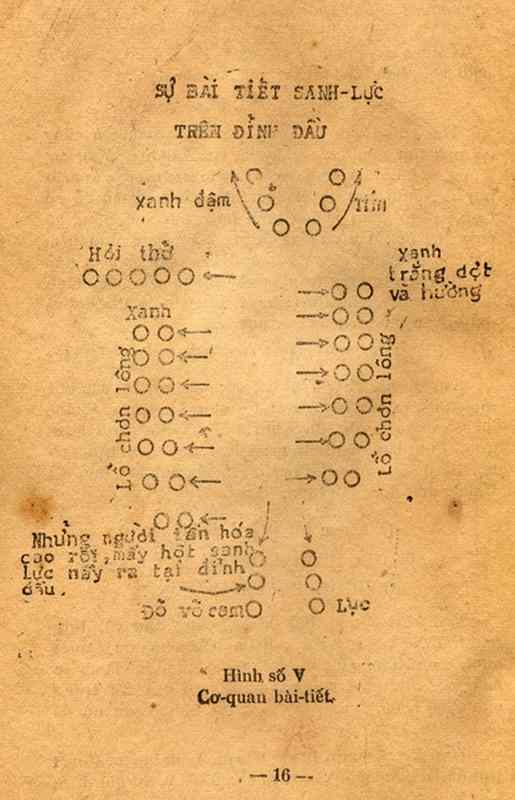 SỰ BÀI TIẾT SANH-LỰC
TRÊN ĐỈNH ĐẦU
xanh đậm
Tím
Hỏi thở
Xanh
trắng dợt
và hường
Xanh
Lỗ chơn lông
Lỗ chơn lông
Những người tấn hóa
cao rồi, mấy hột sanh
lực nầy ra tại đỉnh
đầu.
Đỏ về cam
Lục
Hình số V
Cơ-quan bài-tiết.
— 16 —